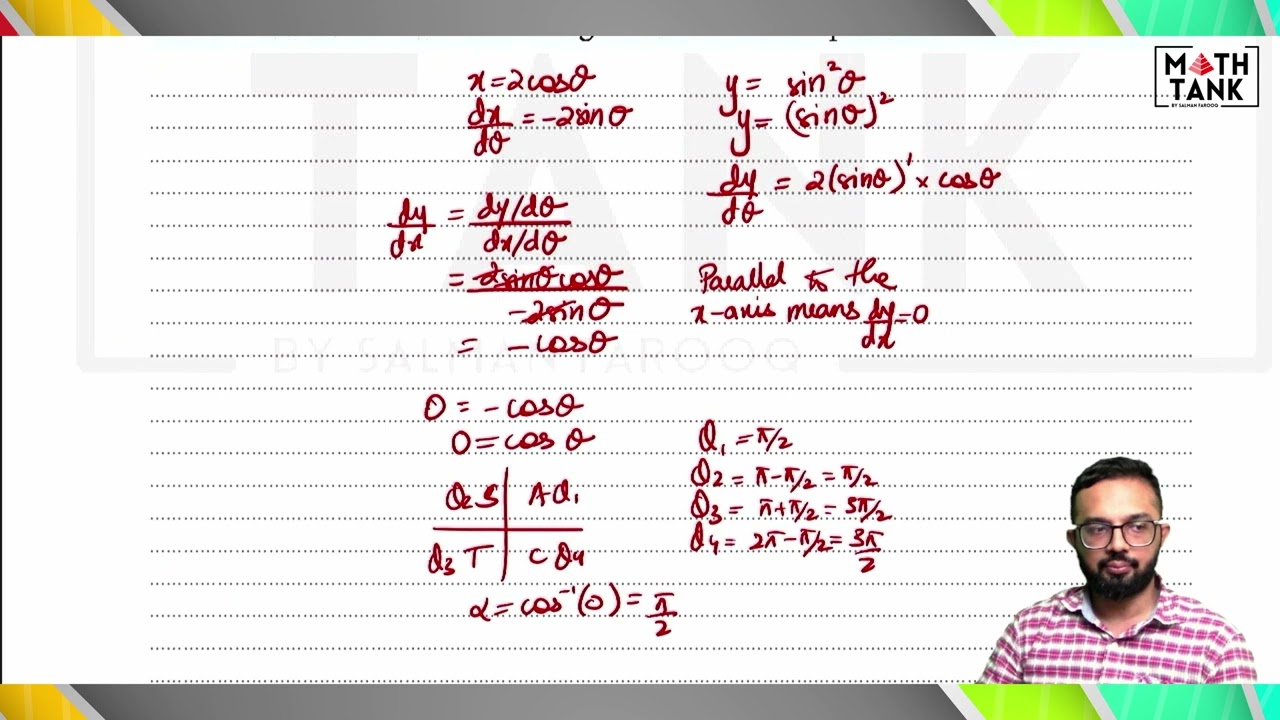 MATH
TANK
BY SALMAN FAROOQ
x = 2cosθ
dx/dθ = -2sinθ
y = sin²θ
y = (sinθ)²
dy/dθ = 2(sinθ)¹ × cosθ
dy/dx = (dy/dθ)/(dx/dθ)
= (2sinθcosθ)/(-2sinθ)
= -cosθ
Parallel to the
x-axis means dy/dx = 0
TANK
BY SALMAN FAROOQ
0 = -cosθ
0 = cosθ
Q2 S | A Q1
Q3 T | C Q4
α = cos⁻¹(0) = π/2
Q1 = π/2
Q2 = π - π/2 = π/2
Q3 = π + π/2 = 3π/2
Q4 = 2π - π/2 = 3π/2